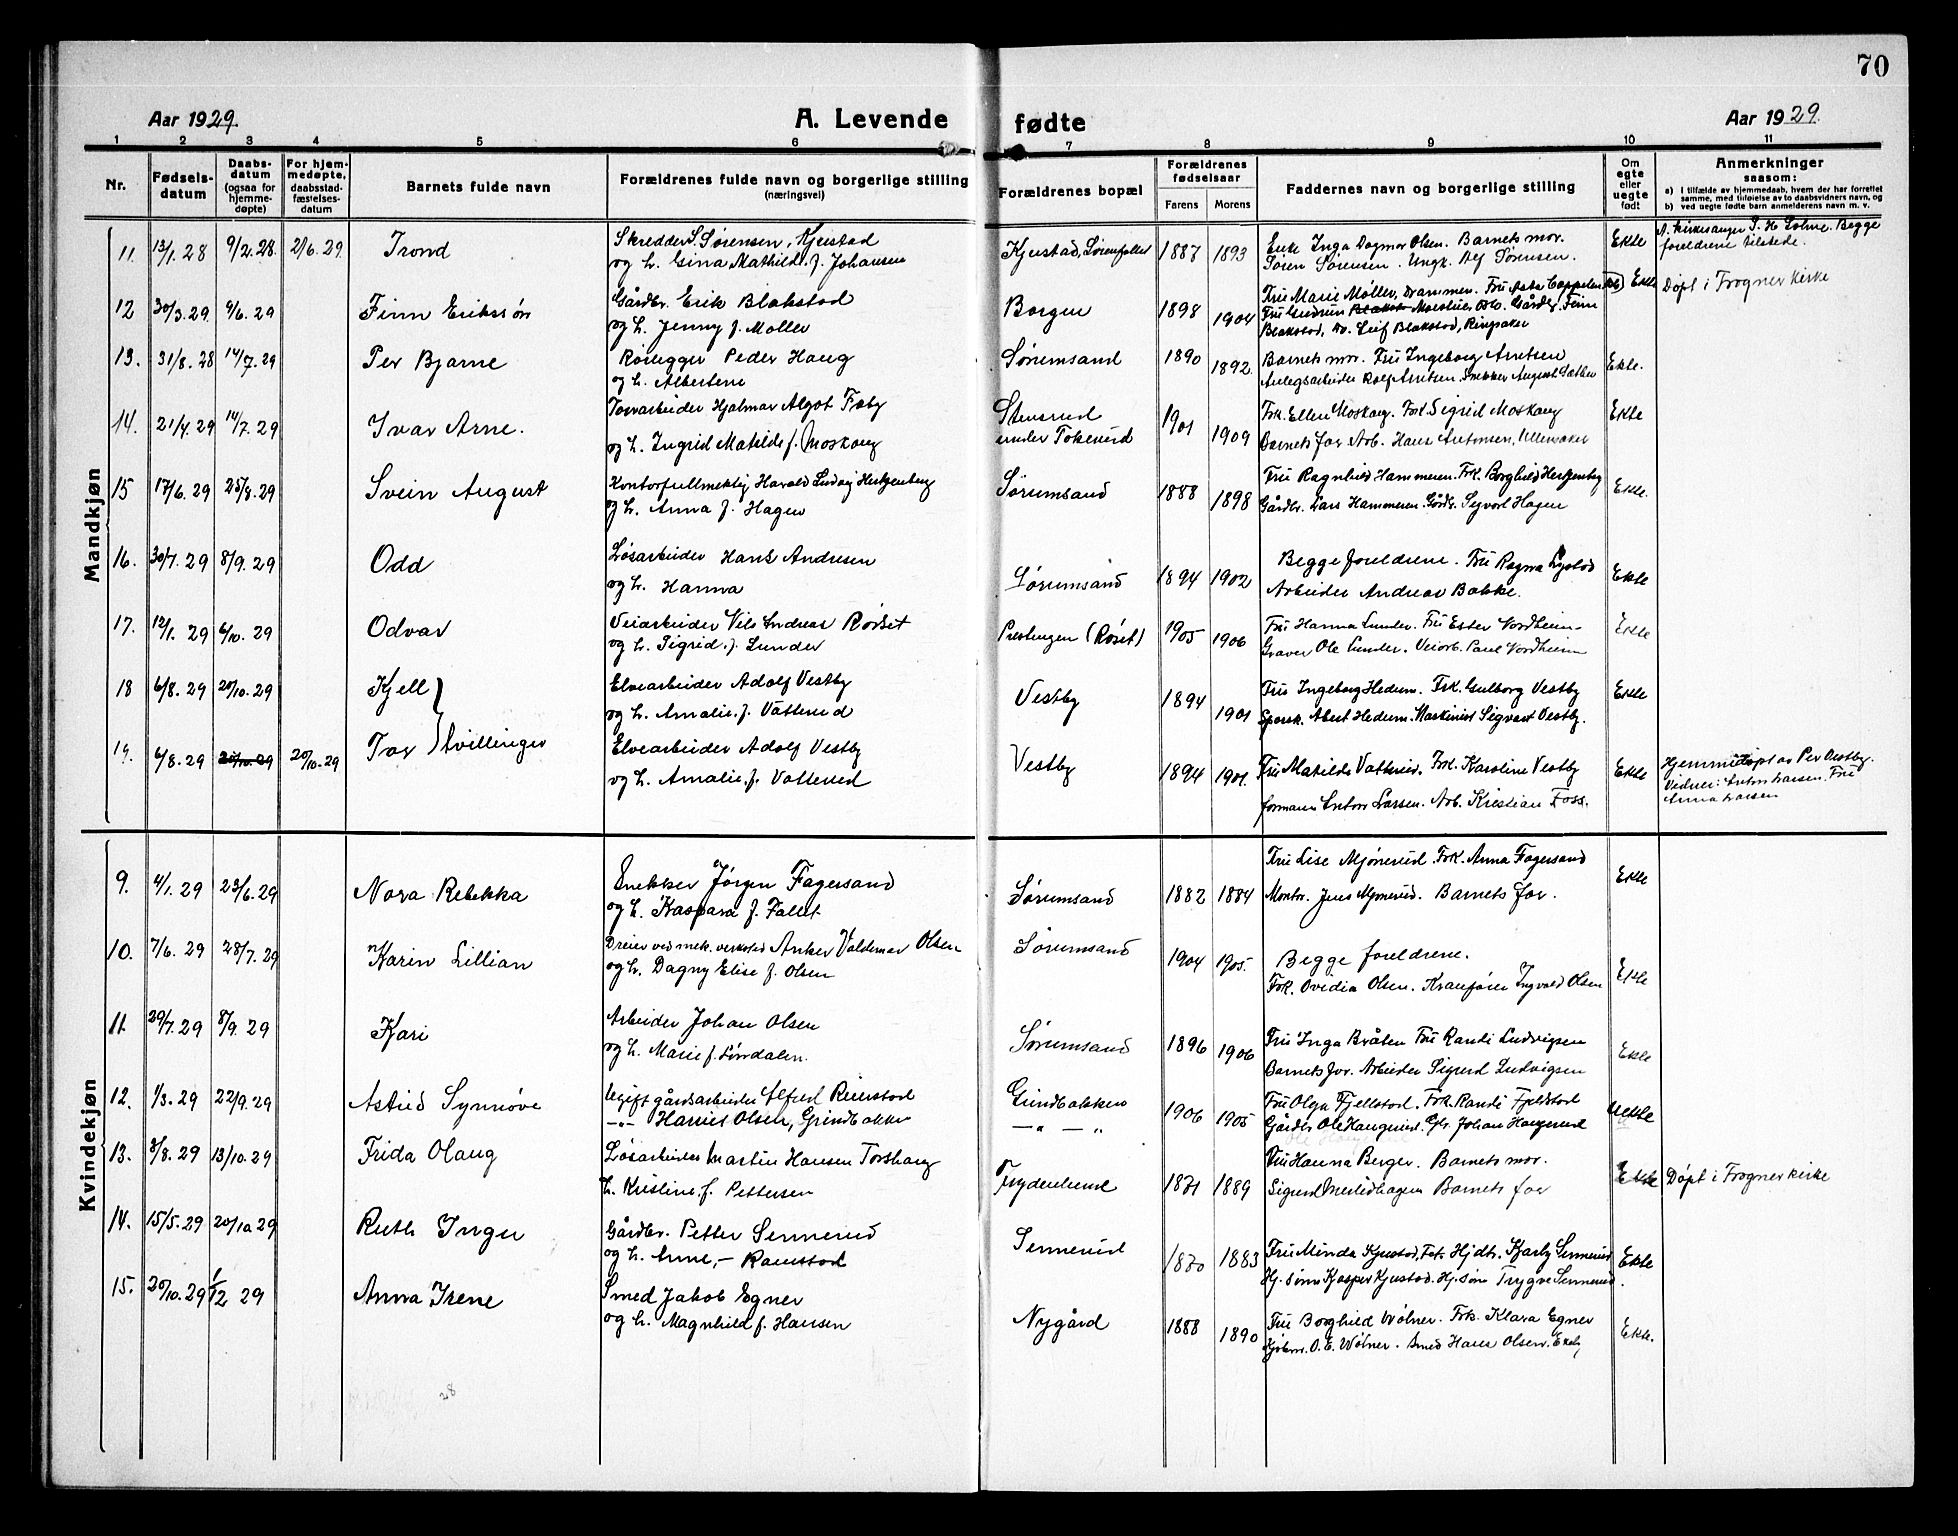 70
Aar 1929. A. Levende fødte Aar 1929.
1 2 3 4 5 6 7 8 9 10 11
Nr. Fødsels-datum Daabs-datum (ogsaa for hjemme-døpte) For hjem-medøpte, daabsstad-fæstelses-datum Barnets fulde navn Forældrenes fulde navn og borgerlige stilling (næringsvei) Forældrenes bopæl Forældrenes fødselsaar Farens Morens Faddernes navn og borgerlige stilling Om egte eller uegte født Anmerkninger saasom:
a) I tilfælde av hjemmedaab, hvem der har forrettet samme, med tilføielse av to daabsvidners navn, og
b) ved uegte fødte barn anmelderens navn m. v.
Mandkjøn
11. 13/1. 28 9/2. 28. 2/6. 29 Trond Skredder S. Sørensen, Kjustad Kjustad, Sørumfallet 1887 1893 Enke Inga Dagmar Olsen. Barnets mor. Ekte A. Kirkesanger P. H. Solme. Begge
og h. Gina Mathild. f. Johansen Søren Sørensen. Ungk. Alf Sørensen. foreldrene tilstede.
12 30/3. 29. 9/6. 29 Finn Erikssøn Gårdbr. Erik Blakstad Borgen 1898 1904 Fru Marie Møller, Drammen. Fru Asta Cappelen Ekte Døpt i Frogner Kirke
og h. Jenny f. Møller Fru Gudrun Oslo. Gårdbr. Finn
Blakstad, do. Leif Blakstad, Ringsaker
13. 31/8. 28 14/7. 29 Per Bjarne Rørlegger Peder Haug Sørumsand 1890 1892. Barnets mor. Fru Ingeborg Arntsen Ekte.
og h. Albertine Anlegsarbeider Rolf Arntsen. Snekker August Sæther
14. 21/4. 29 14/7. 29 Ivar Arne. Torvarbeider Hjalmar Algot Frøby Stensrud 1901 1909 Frk. Ellen Moskaug. Frk. Sigrid Moskaug Ekte
og h. Ingrid Matilde f. Moskaug under Tokerud Barnets far Arb. Hans Antonsen, Ullensaker
15 17/6. 29 25/8. 29 Svein August Kontorfullmektig Harald Ludvig Hertzenberg Sørumsand 1888 1898 Fru Ragnhild Hammeren. Frk. Borghild Hertzenberg Ekte.
og h. Anna f. Hagen Gårdbr. Lars Hammeren. Gårdbr. Sigvart Hagen
16. 30/7. 29 8/9. 29 Odd Løsarbeider Hans Andresen Sørumsand 1894 1902 Begge foreldrene. Fru Ragna Lystad Ekte
og h. Hanna Arbeider Andreas Bakke.
17. 12/1. 29 6/10. 29 Odvar Veiarbeider Nils Andreas Røiset Prestengen (Røset) 1905 1906 Fru Hanna Lunder. Fru Ester Nordheim Ekte
og h. Sigrid. f. Lunder Graver Ole Lunder. Veiarb. Paul Nordheim
18 6/8. 29 20/10. 29 Kjell Elvearbeider Adolf Vestby Vestby 1894 1901 Fru Ingeborg Hedum. Frk. Gulborg Vestby Ekte
og h. Amalie. f. Vatterud Albert Hedum. Maskinist Sigvart Vestby.
19. 6/8. 29 20/10. 29 20/10. 29 Tor tvillinger Elvearbeider Adolf Vestby Vestby 1894 1901. Fru Matilde Vatterud. Frk. Karoline Vestby Ekte Hjemmedøpt av Per Østby.
og h. Amalie. f. Vatterud formann Anton Larsen. Arb. Kristian Foss. Vidner: Anton Larsen. Fru
Anna Larsen
Kvindekjøn
9. 4/1. 29 23/6. 29 Nora Rebekka Snekker Jørgen Fagersand Sørumsand 1882 1884 Fru Lise Mjønerud. Frk. Anna Fagersand Ekte
og h. Kaspara f. Fallet Montør. Jens Mjønerud. Barnets far.
10. 7/6. 29 28/7. 29 Karin Lillian Dreier ved mek. verksted Anker Valdemar Olsen Sørumsand 1904 1905. Begge foreldrene. Ekte
og h. Dagny Elise f. Olsen Frk. Ovidia Olsen. Kranfører Ingvald Olsen
11. 29/7. 29 8/9. 29 Kari Arbeider Johan Olsen Sørumsand 1896 1906 Fru Inga Bråten Fru Randi Ludvigsen Ekte
og h. Marie f. Lørdalen. Barnets far. Arbeider Sigurd Ludvigsen
12. 1/3. 29 22/9. 29 Astrid Synnøve Ugift gårdsarbeider Alfred Reierstad Grindbakken 1906 1905 Fru Olga Fjellstad. Frk. Randi Fjeldstad Uekte
—„— Harriet Olsen, Grindbakken — „ — „ Gårdbr. Ole Haugerud. Gbr. Johan Haugerud
13. 3/8. 29 13/10. 29 Frida Olaug Løsarbeider Martin Hansen Torshaug Frydenlund 1871 1889 Fru Hanna Berger. Barnets mor. Ekte Døpt i Frogner kirke
h. Kristine. f. Pettersen Sigurd Barnets far
14. 15/5. 29 20/10 29 Ruth Inger Gårdbr. Petter Sennerud Sennerud 1870 1883 Fru Minda Kjustad, Hjdtr. Kjarly Sennerud Ekte
og h. Anne, — Ramstad Hj. sønn Kasper Kjustad. Hj. søn Trygve Sennerud.
15. 20/10. 29 1/12 29 Anna Irene Smed Jakob Egner Nygård 1888 1890 Fru Borghild Wølner. Frk. Klara Egner Ekte.
og h. Magnhild f. Hansen Kjøbm. O. E. Wølner. Smed Hans Olsen.
28